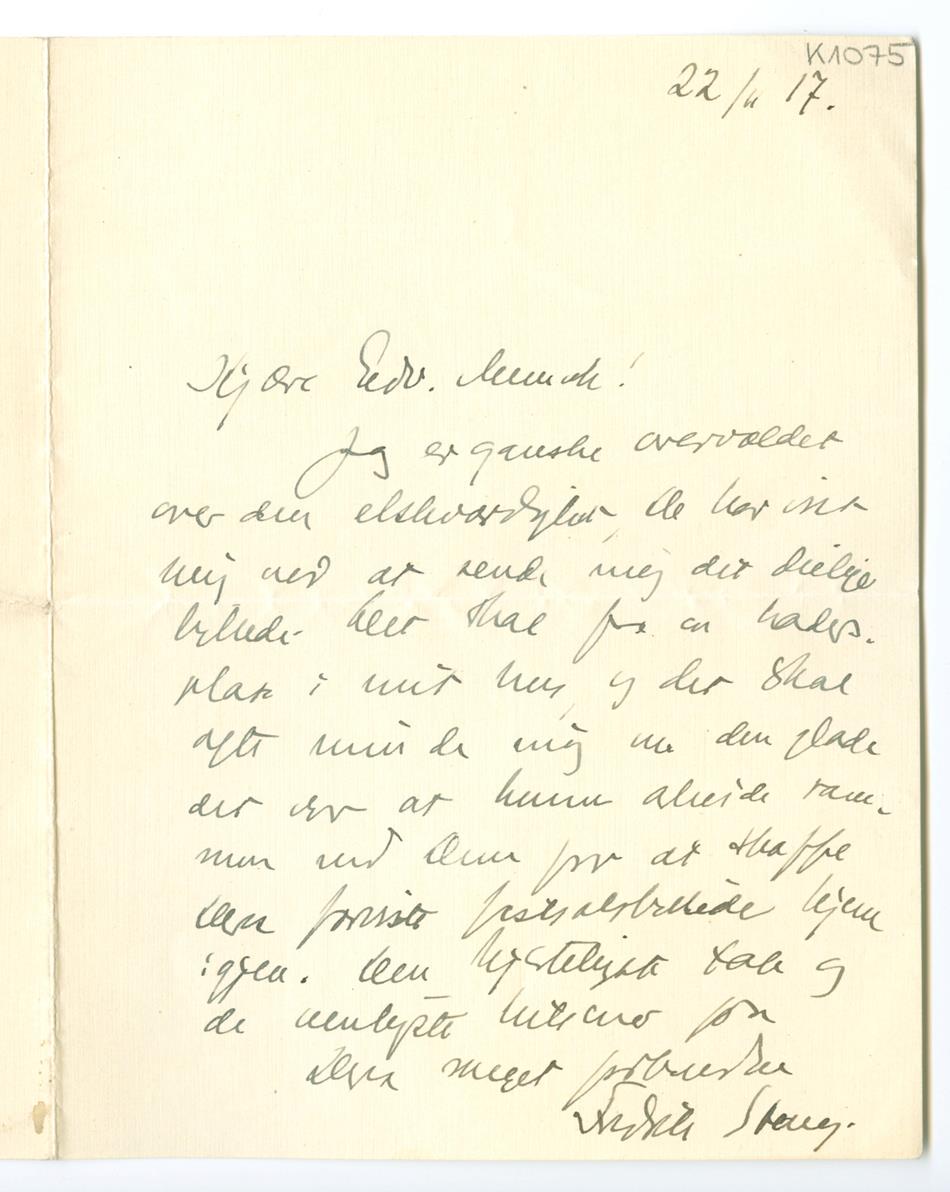 K1075
22/11 17.
Kjære Edv. Munch!
Jeg er ganske overvældet
over den elskværdighet, De har vist
mig ved at sende mig det deilige
billede. Det skal faa en hæders-
plass i mit hus, og det skal
ofte minde mig om den glæde
det var at kunne arbeide sam-
men med Dem for at skaffe
Deres festsalsbillede hjem
igjen. Den hjerteligste tak og
de venligste hilsener fra
Deres meget forbundne
Fredrik Stang.